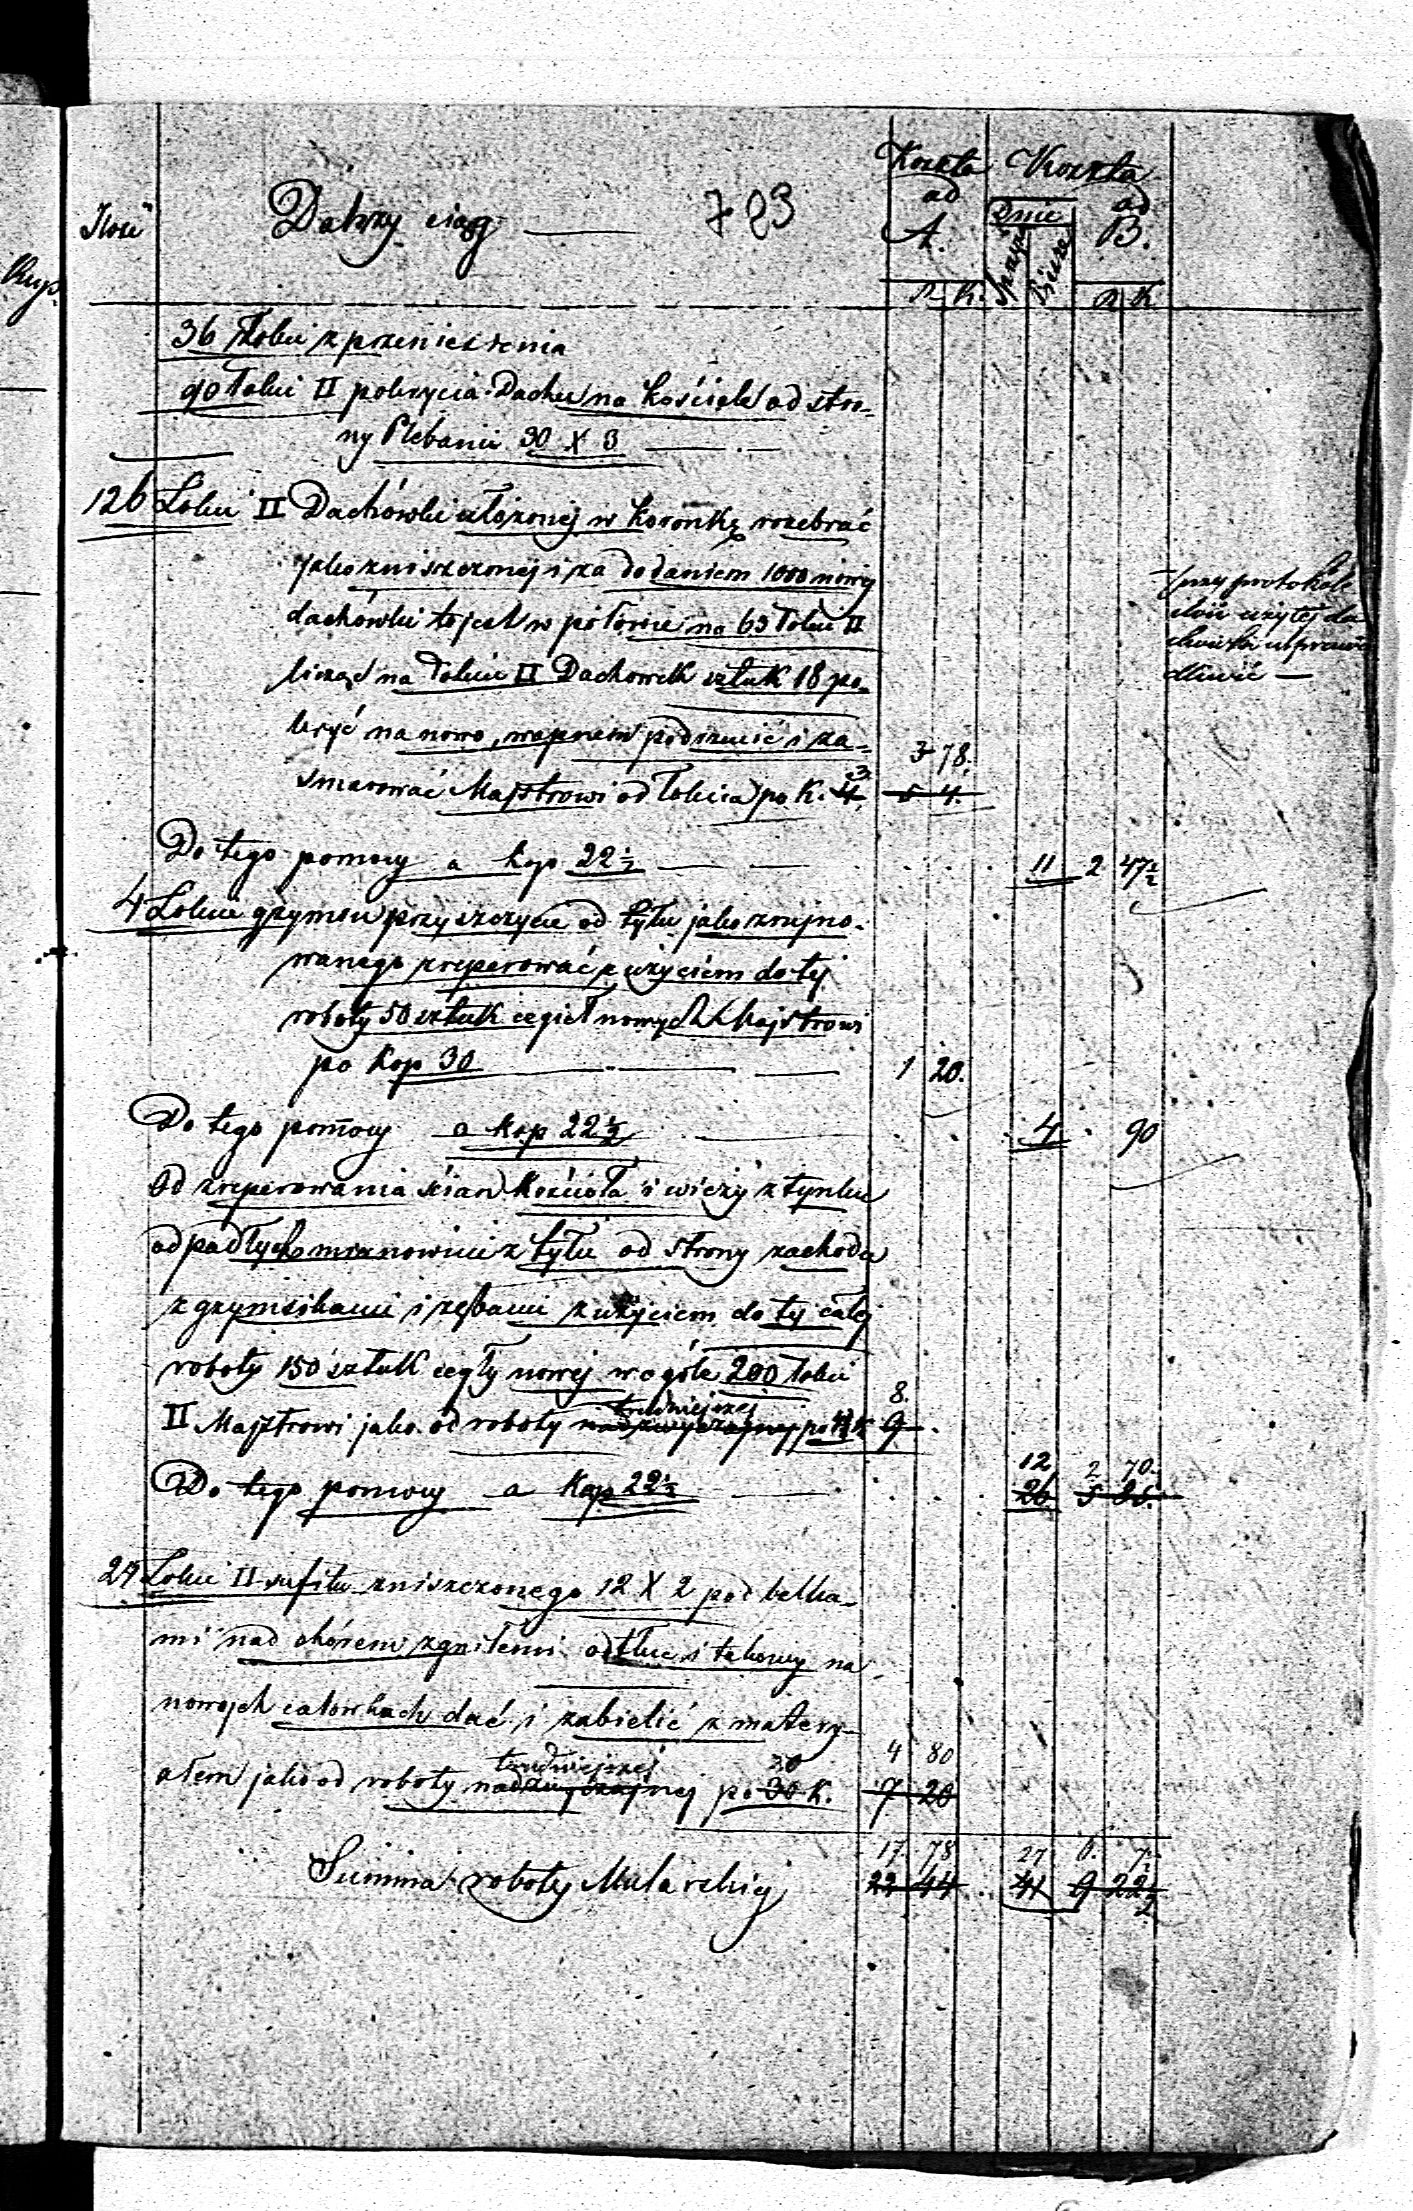 Ilość
Dalszy ciąg — 723
Koszta ad A.
R. K.
Dnie
Sprzęż. Piesze
Koszta ad B.
R. K.
Kop.
36 Łokci z przeniesienia
90 Łokci □ pokrycia Dachu na kościele od stro-
ny Plebanii 30 X 3 —
126 Łokci □ Dachówki ułożonej w koronkę rozebrać
jako zniszczonej i za dodaniem 1000 nowej
dachówki to jest w połowie na 63 Łokci □
licząc na Łokieć □ Dachówek sztuk 18 po-
kryć na nowo, wapnem podrzucić i za-
smarować Majstrowi od łokcia po K. 4 3 5 4. 3 78.
przy protokole
ilość użytej da
chówki usprawie
dliwić —
Do tego pomocy a kop 22½ — 11 2 47½
4 Łokcie gzymsu przy szczycie od tyłu jako zrujno-
wanego zreperować z użyciem do tej
roboty 50 sztuk cegieł nowych Majstrowi
po kop 30 — 1 20.
Do tego pomocy a kop 22½ — 4 90
Od zreperowania ścian kościoła i wieży z tynku
odpadłych mianowicie z tyłu od strony zachodu
z gzymsikami i zębami z użyciem do tej całej
roboty 150 sztuk cegły nowej w ogóle 200 łokci
□ Majstrowi jako od roboty nadzwyczajnej trudniejszej po 4½ K 9. 8.
Do tego pomocy a kop 22½ — 26 5 85. 12 2 70.
24 Łokci □ sufitu zniszczonego 12 X 2 pod belka-
mi nad chórem zgniłemi odtłuc i takowy na
nowych calówkach dać i zabielić z matery-
ałem jako od roboty nadzwyczajnej trudniejszej po 30 K. 20 7 20 4 80
Summa roboty Mularskiej 22 44 41 9 22½ 17. 78 27 6. 7½